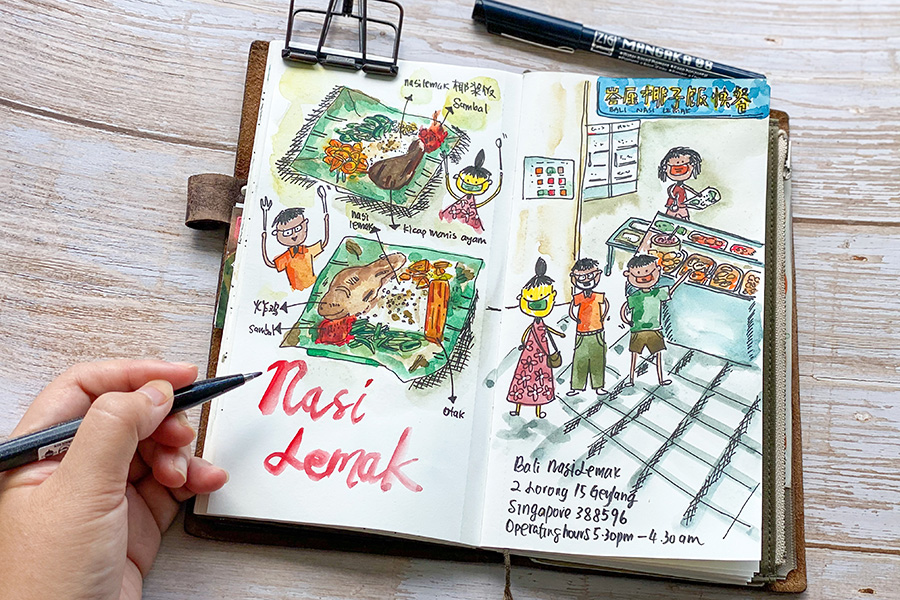 nasilemak 椰浆饭
Sambal
nasi
lemak
Kicap manis ayam
sambal
otak
Nasi
Lemak
ZIG MANGAKA 08
峇厘椰子饭快餐
BALI NASI LEMAK
Bali NasiLemak
2 Lorong 15 Geylang
Singapore 388596
Operating hours 5.30pm - 4.30am